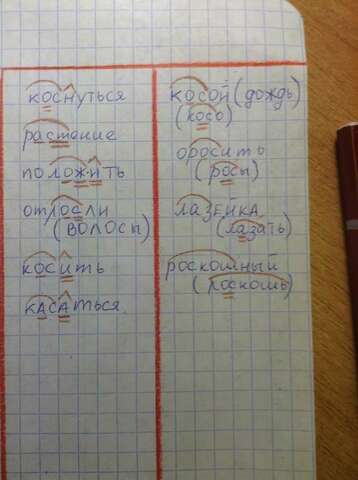 коснуться
растение
положить
отлосли
(волосы)
косить
касаться
косой (дождь)
(косо)
оросить
(росы)
лазейка
(лазать)
роскошный
(роскошь)